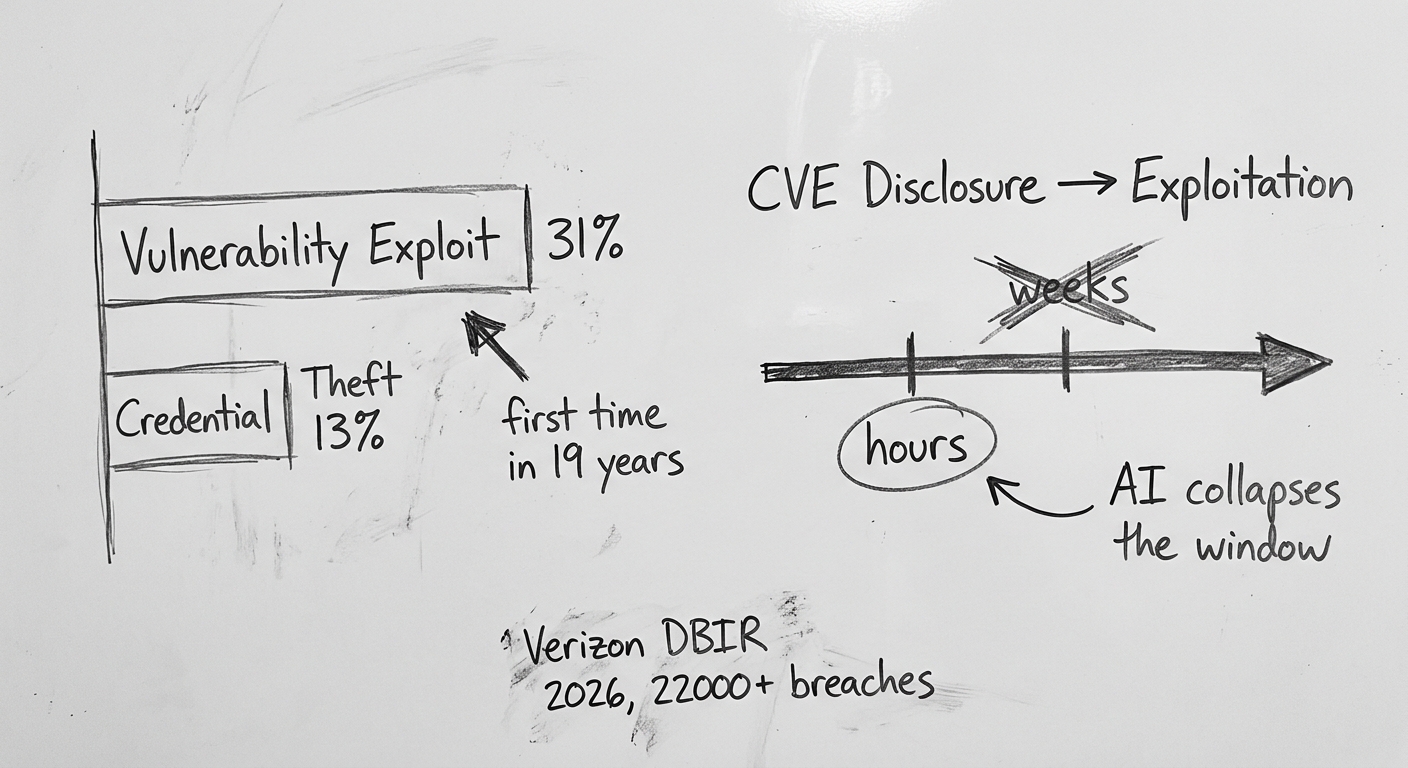 Vulnerability Exploit 31%
Credential Theft 13%
first time
in 19 years
CVE Disclosure → Exploitation
weeks
hours
AI collapses
the window
Verizon DBIR
2026, 22000+ breaches